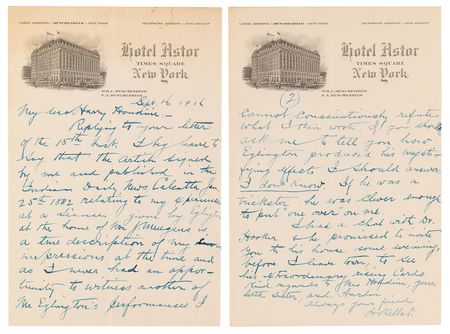 CABLE ADDRESS, MUSCHENHEIM - NEW YORK
Hotel Astor
TIMES SQUARE
New York
WM. C. MUSCHENHEIM
F. A. MUSCHENHEIM
Sept. 16 1916
My dear Harry Houdini:-
Replying to your letter
of the 15th inst. I beg leave to
say that the article signed
by me and published in the
Indian Daily News Calcutta Jan
25th 1882 relating to my experience
at a Seance given by Eglington
at the home of Mr J. Meugens is
a true description of my
impressions at the time and
as I never had an oppor-
tunity to witness another of
Mr Eglington's performances I
CABLE ADDRESS, MUSCHENHEIM - NEW YORK
Hotel Astor
TIMES SQUARE
New York
WM. C. MUSCHENHEIM
F. A. MUSCHENHEIM
(2)
cannot conscientiously refute
what I then wrote. If you should
ask me to tell you how
Eglington produced his mysti-
fying effects I should answer:
I don't know. If he was a
trickster, he was clever enough
to put one over on me.
I had a chat with Dr.
Hooker - he promised to invite
you to his house some evening,
before I leave town, to see
his extraordinary rising Cards.
Kind regards to Mrs Houdini, your
Sister, and Hardin
Always your friend
H. Kellar.